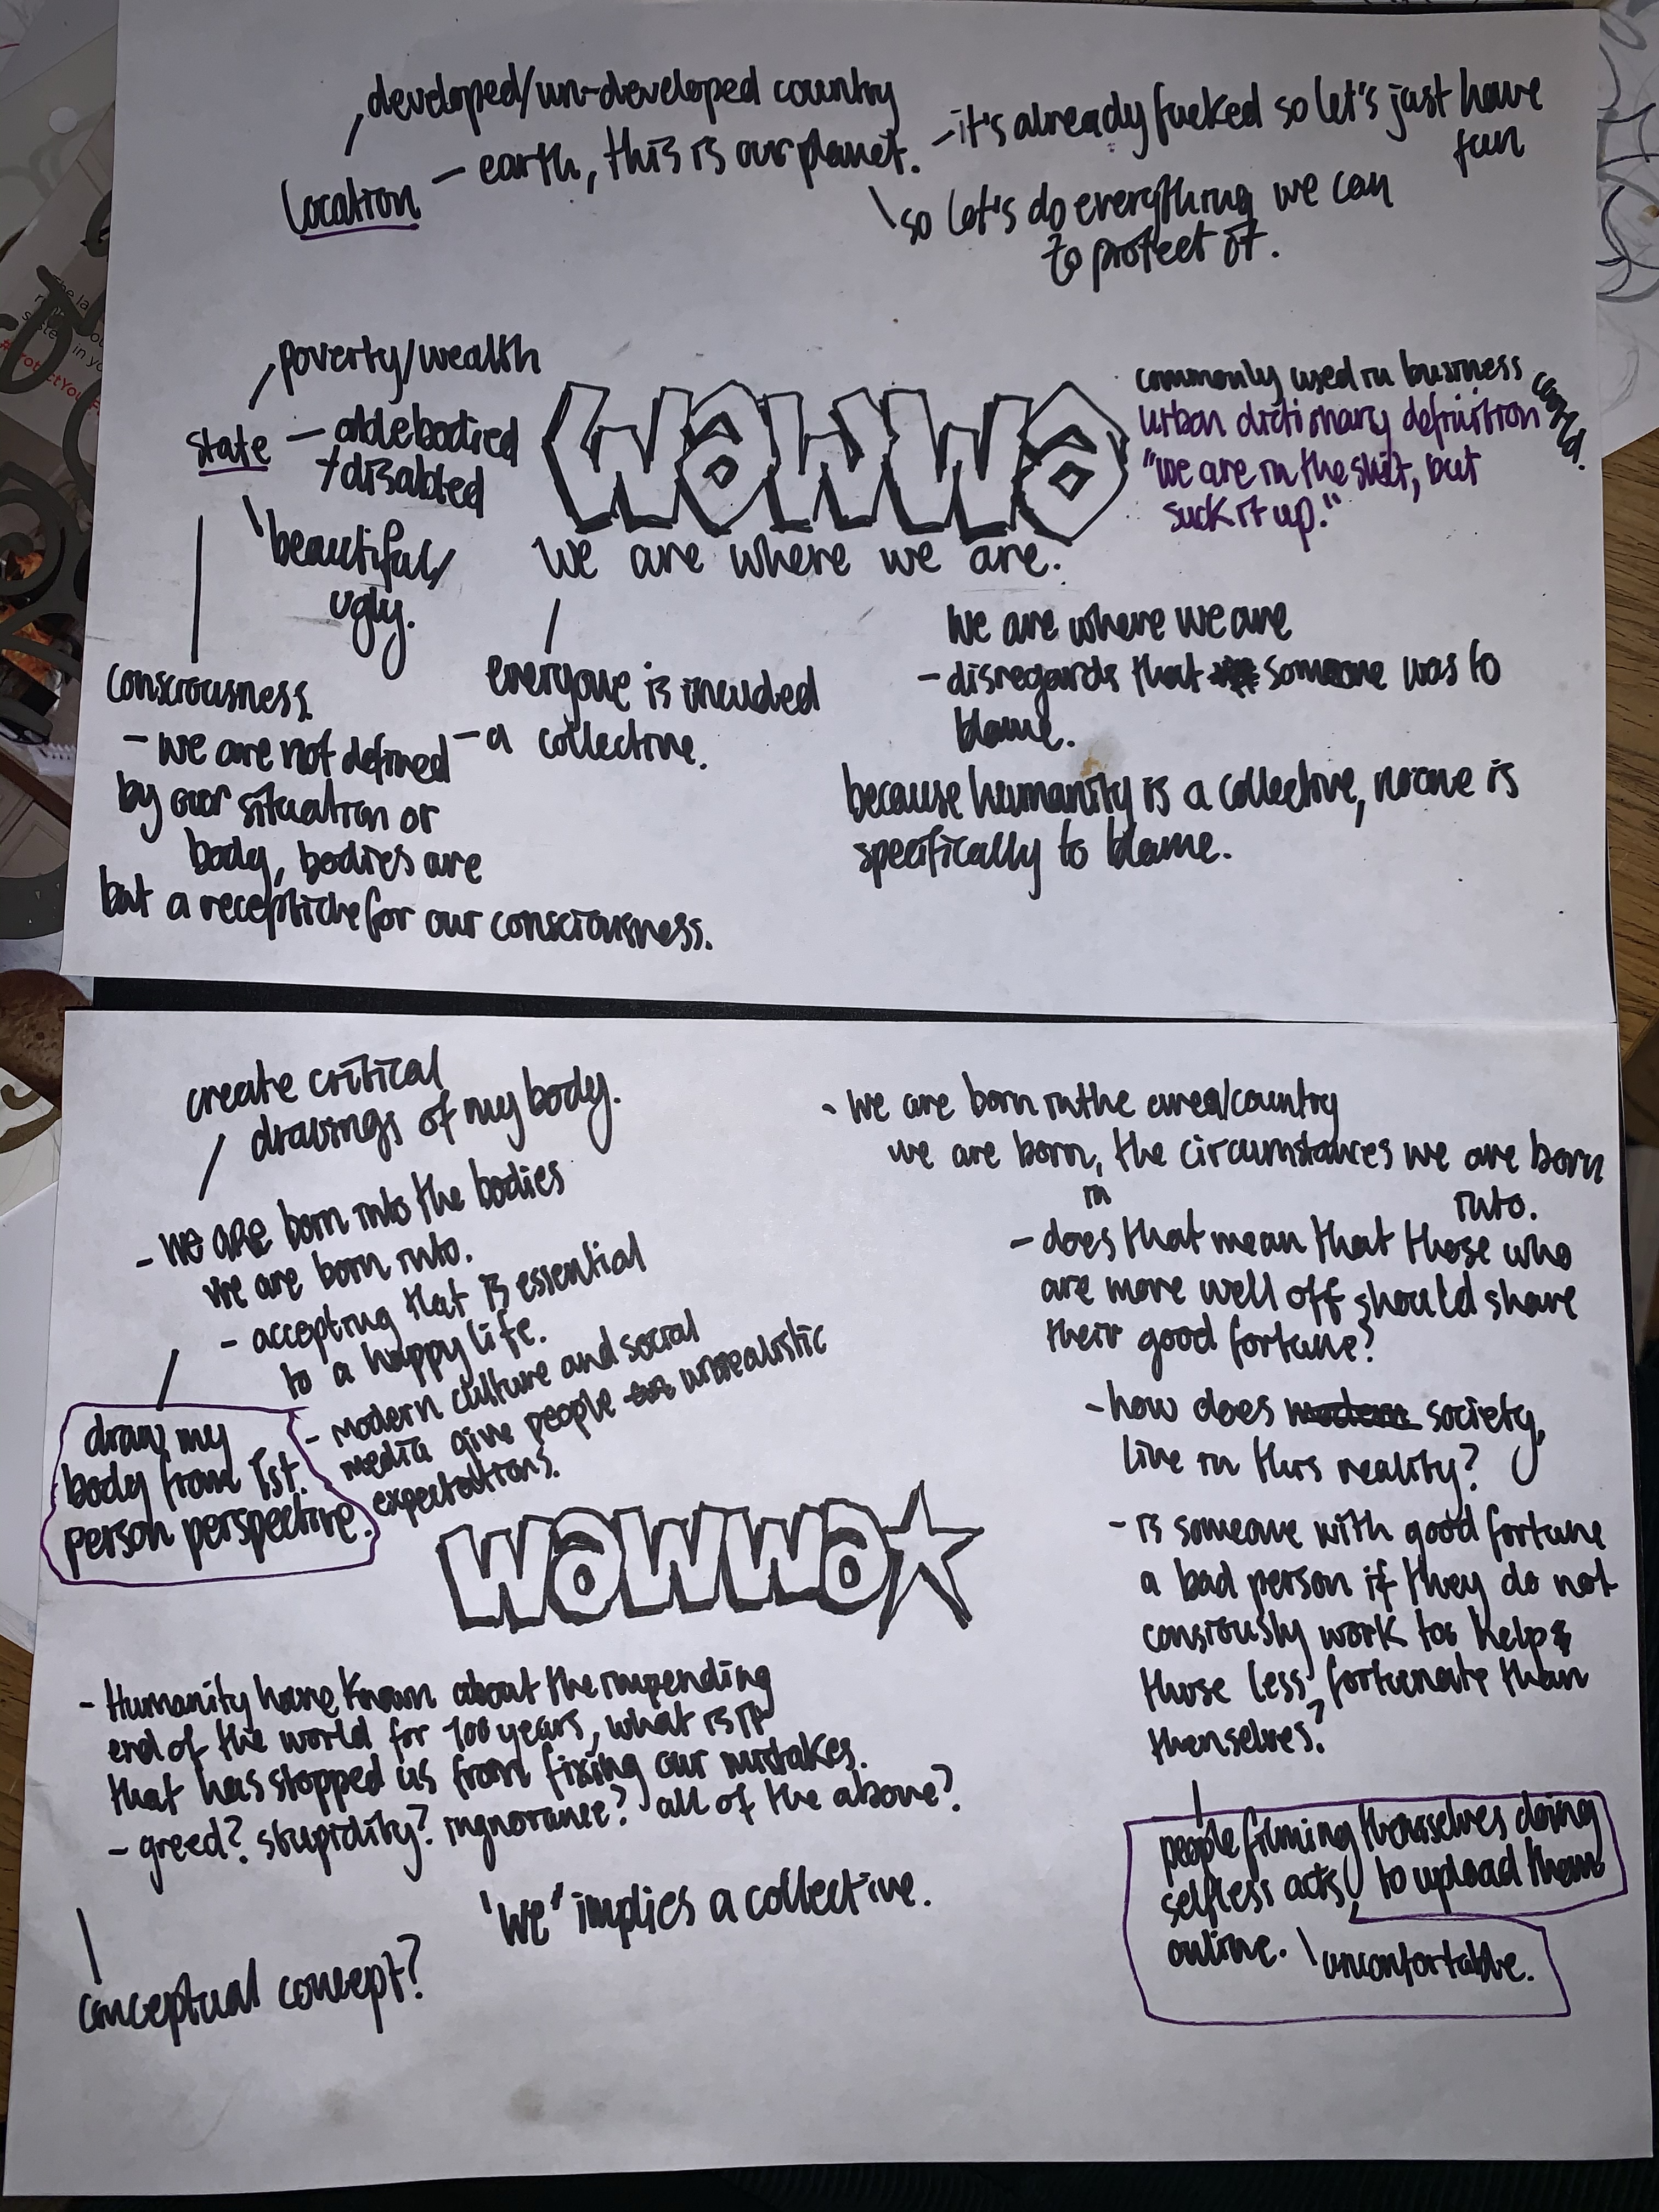 developed/un-developed country
Location
- earth, this is our planet.
- it's already fucked so let's just have
fun
so let's do everything we can
to protect it.
poverty/wealth
state
- able bodied
+ disabled
beautiful/
ugly.
WaWWa
we are where we are.
commonly used in business world.
urban dictionary definition
"we are in the shit, but
suck it up."
consciousness.
- we are not defined
by our situation or
body, bodies are
but a recepticle for our consciousness.
everyone is incuded
- a collective.
We are where we are
- disregards that someone was to
blame.
because humanity is a collective, no one is
specifically to blame.
create critical
drawings of my body.
- we are born into the bodies
we are born into.
- accepting that is essential
to a happy life.
- modern culture and social
media give people unrealistic
expectations.
draw my
body from 1st.
person perspective.
WaWWa
- Humanity have known about the impending
end of the world for 100 years, what is it
that has stopped us from fixing our mistakes.
- greed? stupidity? ingnorance? all of the above?
conceptual concept?
"we" implies a collective.
- we are born in the area/country
we are born in, the circumstances we are born
into.
- does that mean that those who
are more well off should share
their good fortune?
- how does society,
live in this reality?
- is someone with good fortune
a bad person if they do not
consiously work to help
those less fortunate than
themselves?
people filming themselves doing
selfless acts, to upload them
online.
uncomfortable.